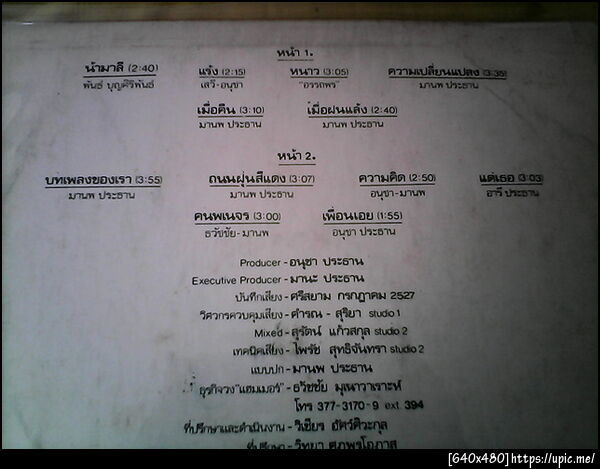 หน้า 1.
น้ำมาลี (2:40) แร้ง (2:15) หนาว (3:05) ความเปลี่ยนแปลง (3:35)
พันธุ์ บุญศิริพันธ์ เสรี-อนุชา "อรรถพร" มานพ ประธาน
เมื่อคืน (3:10) เมื่อฝนแล้ง (2:40)
มานพ ประธาน มานพ ประธาน
หน้า 2.
บทเพลงของเรา (3:55) ถนนฝุ่นสีแดง (3:07) ความคิด (2:50) แด่เธอ (3:03)
มานพ ประธาน มานพ ประธาน อนุชา-มานพ อารี ประธาน
คนพเนจร (3:00) เพื่อนเอย (1:55)
ธวัชชัย-มานพ อนุชา ประธาน
Producer - อนุชา ประธาน
Executive Producer - มานะ ประธาน
บันทึกเสียง - ศรีสยาม กรกฎาคม 2527
วิศวกรควบคุมเสียง - ดำรณ - สุริยา studio 1
Mixed - สุรัตน์ แก้วสกุล studio 2
เทคนิคเสียง - ไพรัช สุทธิจันทรา studio 2
แบบปก - มานพ ประธาน
ธุรกิจวง "แฮมเมอร์" - ธวัชชัย
โทร 377-3170-9 ext 394
ที่ปรึกษาและดำเนินงาน - วิเชียร อัศว์ศิวะกุล
ที่ปรึกษา - วิทยา ศุภพรโอภาส
[640x480]https://upic.me/